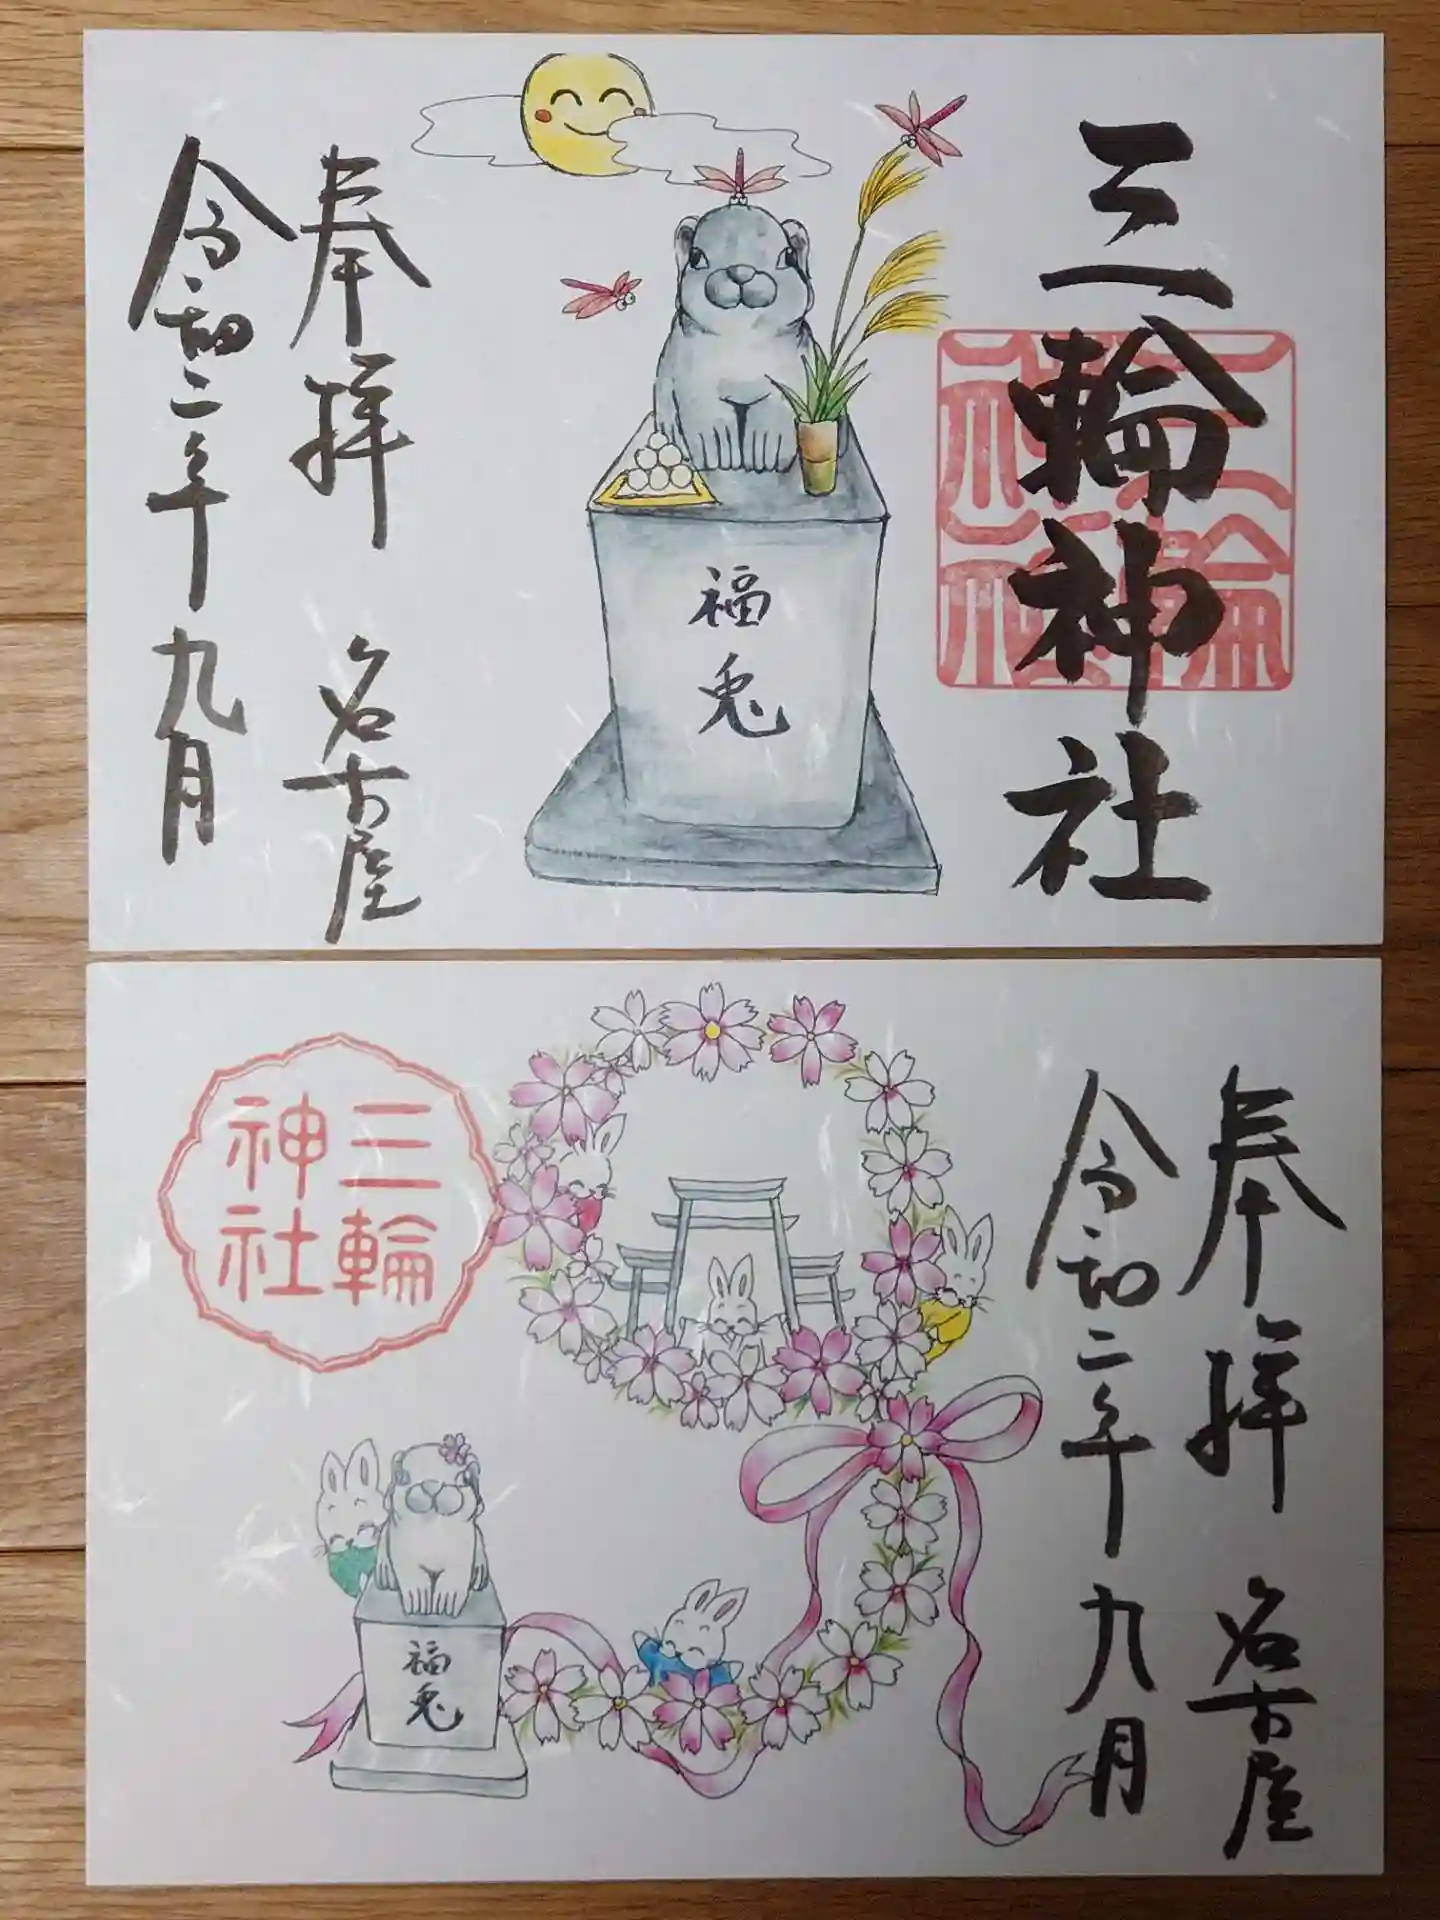 三輪神社
福兎
奉拝 名古屋
令和二年九月
奉拝 名古屋
令和二年九月
三輪
神社
福兎